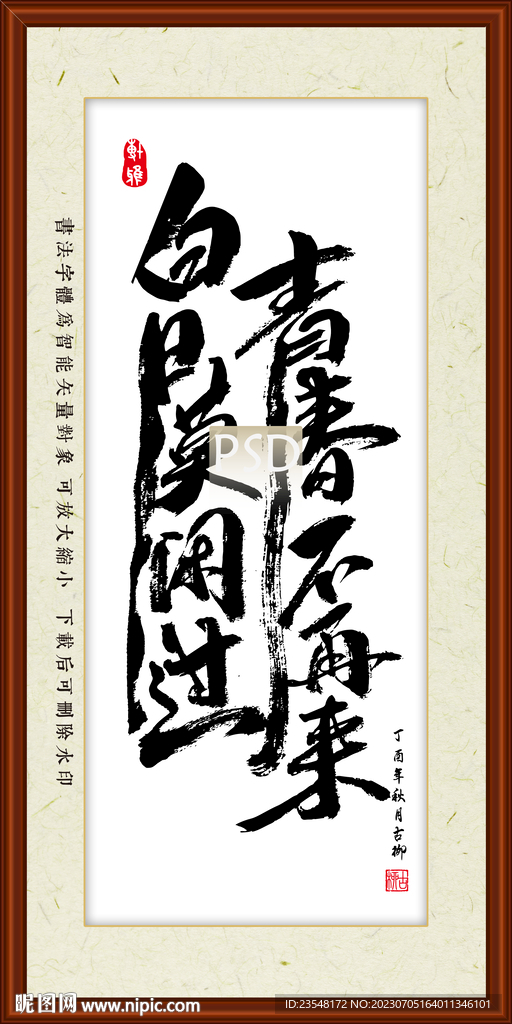 青春不再来
白日莫闲过
丁酉年秋月古柳
軒雅
書法字體為智能矢量對象 可放大縮小 下載后可刪除水印
PSD
昵图网 www.nipic.com
ID:23548172 NO:20230705164011346101